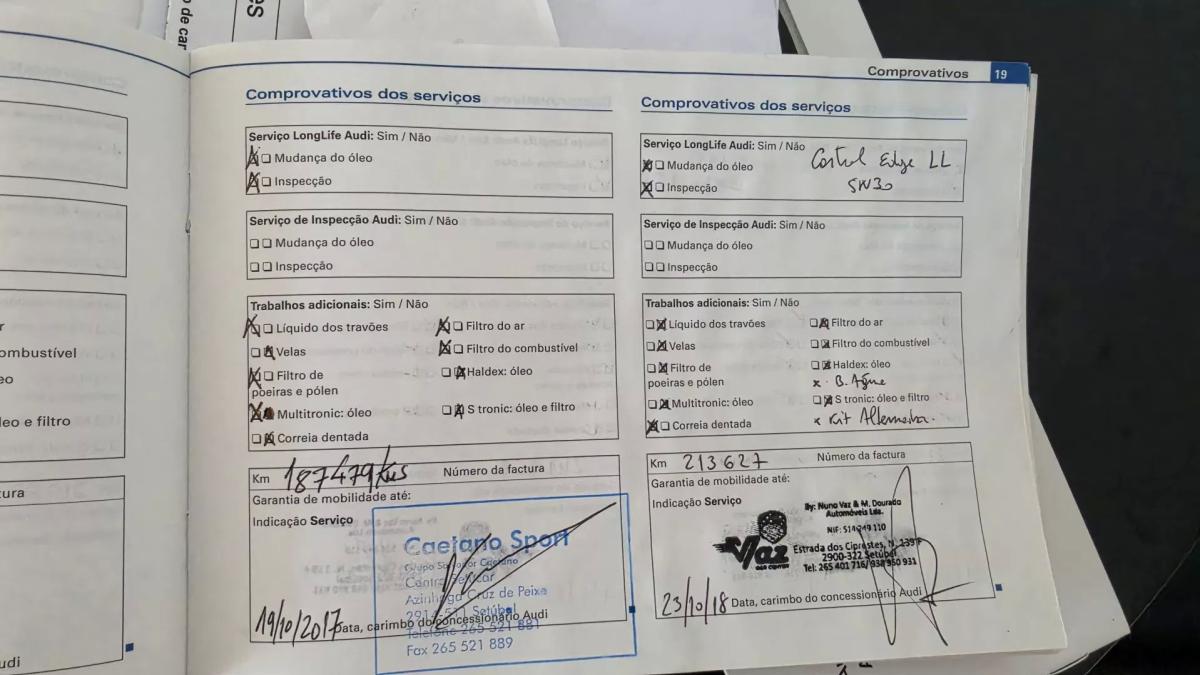 es
o de car
Comprovativos 19
Comprovativos dos serviços
Serviço LongLife Audi: Sim / Não
Mudança do óleo
Inspecção
Serviço de Inspecção Audi: Sim / Não
Mudança do óleo
Inspecção
Trabalhos adicionais: Sim / Não
Líquido dos travões
Filtro do ar
Velas
Filtro do combustível
Filtro de
poeiras e pólen
Haldex: óleo
Multitronic: óleo
S tronic: óleo e filtro
Correia dentada
Km 187479 Kms Número da factura
Garantia de mobilidade até:
Indicação Serviço
Caetano Sport
Grupo Salvador Caetano
Azinhaga Cruz de Peixe
2914-511 Setúbal
Telefone 265 521 881
Fax 265 521 889
19/10/2017 Data, carimbo do concessionário Audi
Comprovativos dos serviços
Serviço LongLife Audi: Sim / Não
Mudança do óleo
Castrol Edge LL
5W30
Inspecção
Serviço de Inspecção Audi: Sim / Não
Mudança do óleo
Inspecção
Trabalhos adicionais: Sim / Não
Líquido dos travões
Filtro do ar
Velas
Filtro do combustível
Filtro de
poeiras e pólen
Haldex: óleo
x B. Água
Multitronic: óleo
S tronic: óleo e filtro
Correia dentada
x Kit Alternador.
Km 213627 Número da factura
Garantia de mobilidade até:
Indicação Serviço
Vaz
By: Nuno Vaz & M. Dourado
Automóveis Lda.
NIF: 514 249 110
Estrada dos Ciprestes, N. 139
2900-322 Setúbal
Tel: 265 401 716/ 938 950 931
23/10/18 Data, carimbo do concessionário Audi
ombustível
eo
leo e filtro
ura
udi